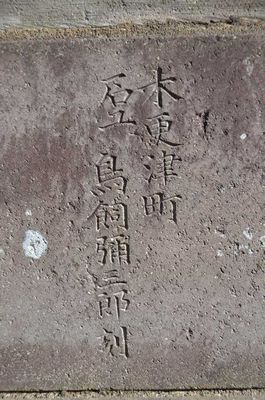 木更津町
石工 鳥飼彌三郎刻